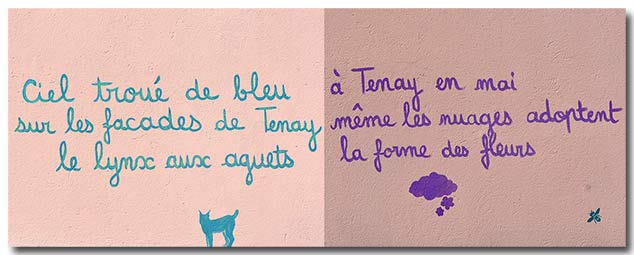 Ciel troué de bleu
sur les facades de Tenay
le lynx aux aguets
à Tenay en mai
même les nuages adoptent
la forme des fleurs